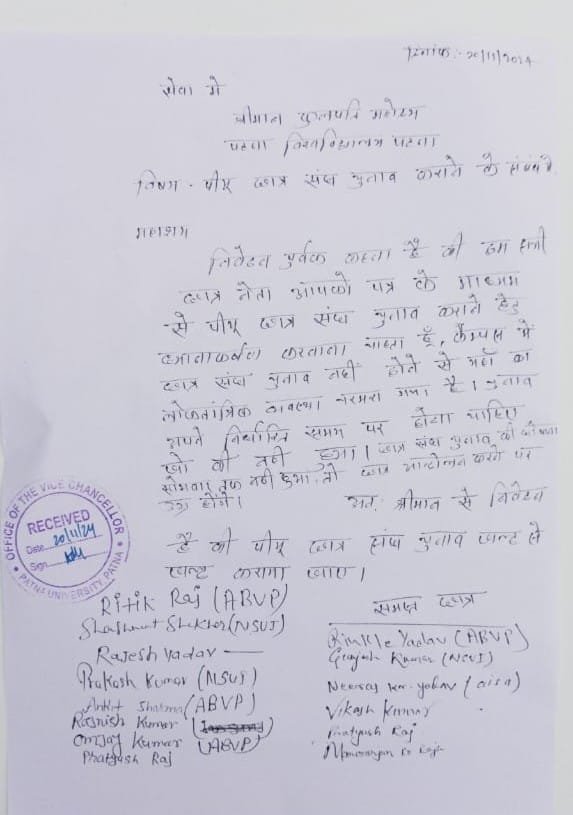 दिनांक:- 20/11/2024
सेवा में
श्रीमान कुलपति महोदय
पटना विश्वविद्यालय पटना।
विषय - पीयू छात्र संघ चुनाव कराने के संबंध में.
महाशय
निवेदन पुर्वक कहना है की हम सभी
छात्र नेता आपको पत्र के माध्यम
से पीयू छात्र संघ चुनाव कराने हेतु
करवाना चाहता हूँ, कैम्पस में
छात्र संघ चुनाव नहीं होने से यहाँ का
लोकतांत्रिक व्यवस्था चरमरा गया है। चुनाव
अपने निर्धारित समय पर होना चाहिए
जो की नहीं हुआ। छात्र संघ चुनाव की घोषणा
सोमवार तक नहीं हुआ, तो छात्र आन्दोलन करने पर
होंगे। अतः श्रीमान से निवेदन
है की पीयू छात्र संघ चुनाव जल्द से
जल्द कराया जाए।
OFFICE OF THE VICE CHANCELLOR
RECEIVED
Date 20/11/24
Sign
PATNA UNIVERSITY, PATNA
समस्त छात्र
Ritik Raj (ABVP)
Shashwat Shekher (NSUI)
Rajesh Yadav
Prakash Kumar (NSUI)
Ankit Sharma (ABVP)
Rajnish Kumar
Omjay Kumar (ABVP)
Pratyush Raj
Rinkle Yadav (ABVP)
Kumar (NSUI)
Neeraj kr. yadav (aisa)
Vikash Kumar
Pratyush Raj